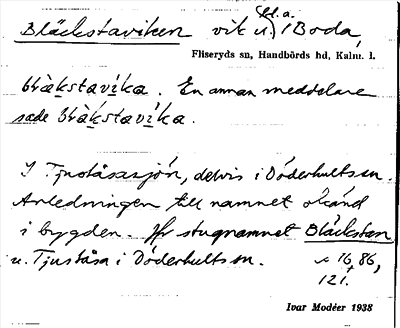 Bläckstaviken vik u. bl.a. i Boda,
Fliseryds sn, Handbörds hd, Kalm. l.
blὰkstavi̇ka. En annan meddelare
sade blὰkstavi̇ka.
I Tjuståsasjön, delvis i Döderhults sn.
Anledningen till namnet okänd
i bygden. Jfr stugnamnet Bläckstan
u. Tjuståsa i Döderhults sn. s. 16, 86,
121.
Ivar Modéer 1938